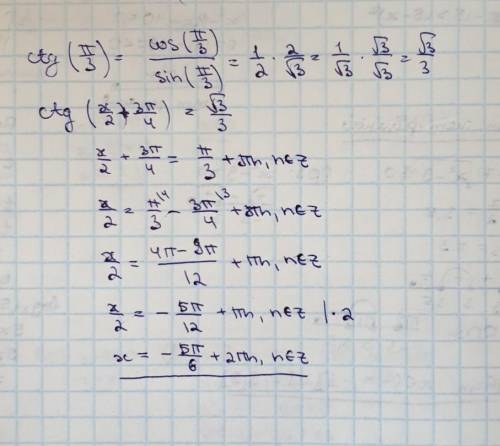 ctg (π/3) = cos(π/3)/sin(π/3) = 1/2 · 2/√3 = 1/√3 · √3/√3 = √3/3
ctg (x/2 + 3π/4) = √3/3
x/2 + 3π/4 = π/3 + πn, n∈Z
x/2 = π/3 ^\4 - 3π/4 ^\3 + πn, n∈Z
x/2 = (4π - 9π)/12 + πn, n∈Z
x/2 = - 5π/12 + πn, n∈Z | · 2
x = - 5π/6 + 2πn, n∈Z